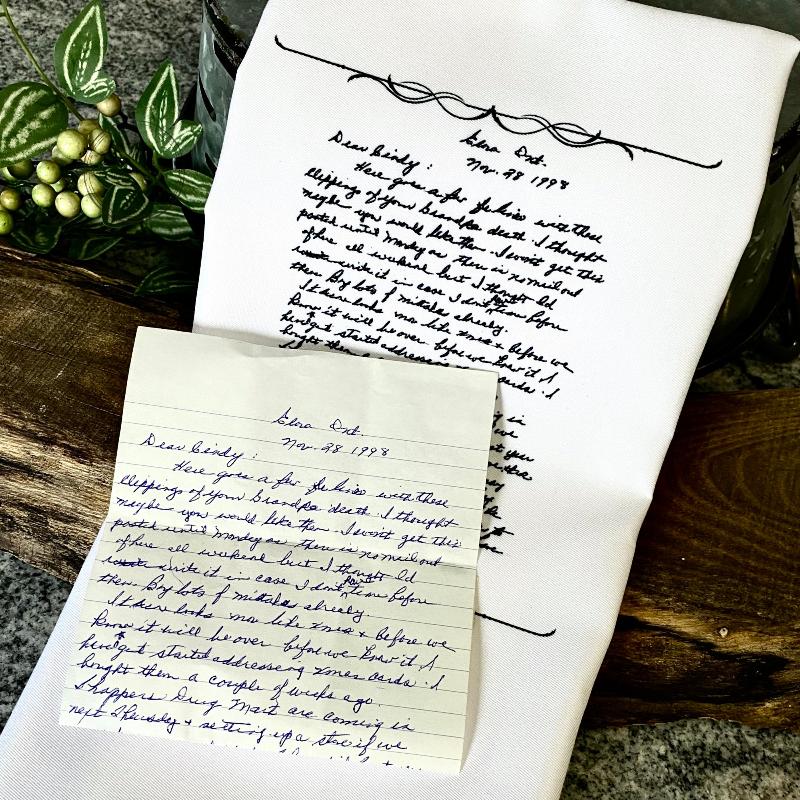 Elora Ont.
Nov. 28 1998
Dear Cindy :
Here goes a few lines with these
clippings of your Grandpa death. I thought
maybe you would like them. I won't get this
posted until Monday as there is no mail out
of here all weekend but I thought Id
write it in case I don't have time before
then. Boy lots of mistakes already.
It sure looks mor like Xmas & before we
know it will be over before we know it. I
haven't got started addressing Xmas cards. I
bought them
in
we
you
Elora Ont.
Nov. 28 1998
Dear Cindy :
Here goes a few lines with these
clippings of your Grandpa death. I thought
maybe you would like them. I won't get this
posted until Monday as there is no mail out
of here all weekend but I thought Id
write it in case I don't have time before
then. Boy lots of mistakes already.
It sure looks mor like Xmas & before we
know it will be over before we know it. I
haven't got started addressing Xmas cards. I
bought them a couple of weeks ago.
Shoppers Drug Mart are coming in
next Thursday & setting up a store if we